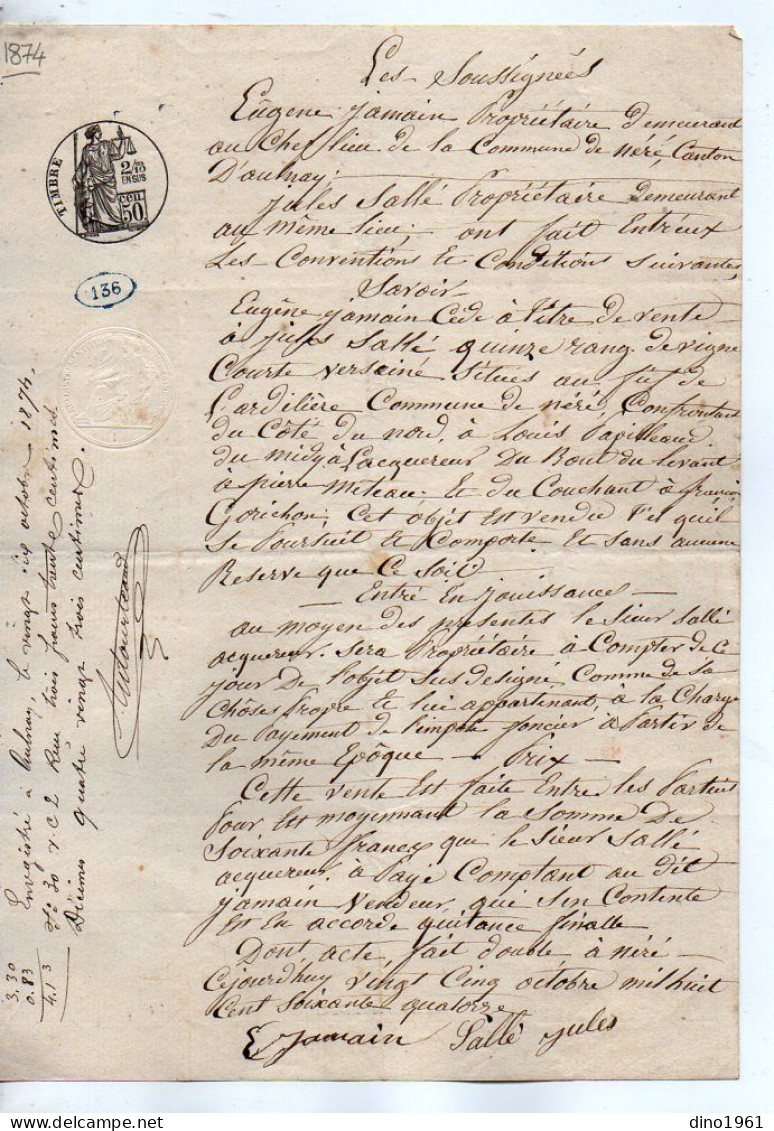 1874
Les Soussignées
Eugène jamain Propriétaire demeurant
au Chef lieu de la Commune de neré Canton
D'aulnay;
jules Sallé Propriétaire demeurant
au même lieu; ont fait Entr'eux
Les Conventions Et Conditions Suivantes
Savoir
Eugène jamain Cède à titre de vente
à jules Sallé quinze rang de vigne
Courte versaine Situés au fief de
L'ardilière Commune de néré, Confrontant
du Côté du nord, à Louis
du midy à Lacquereur Du Bout du levant
à pierre méteau Et du Couchant à
Gorichon; Cet objet Est vendu Tel quil
Se Poursuit & Comporte Et Sans aucune
Reserve que Ce Soit
— Entré En jouissance —
au moyen des presentes le Sieur Sallé
acquereur. Sera Propriétaire à Compter de Ce
jour De l'objet Sus designé Comme de Sa
Chôse Propre & lui appartinant, à la Charge
Du Payement de l'impôt foncier à Partir de
la même Epôque — Prix —
Cette vente Est faite Entre les Parties
Pour Est moyennant la Somme De
Soixante francs que le Sieur Sallé
acquereur à Payé Comptant au Dit
jamain Vendeur qui S'en Contente
Est En accorde quitance finalle
Dont acte, fait double à néré
Cejourdhuy vingt Cinq octobre mil huit
Cent Soixante quatorze
E Jamain Sallé jules
TIMBRE
2/10
EN SUS
CEN.
50
136
Enregistré à Aulnay, le vingt six octobre 1874,
fo 30 r. C 2 Reçu trois francs trente centimes
Décimes quatre vingt trois centimes.
3.30
0.83
4.13
dino1961